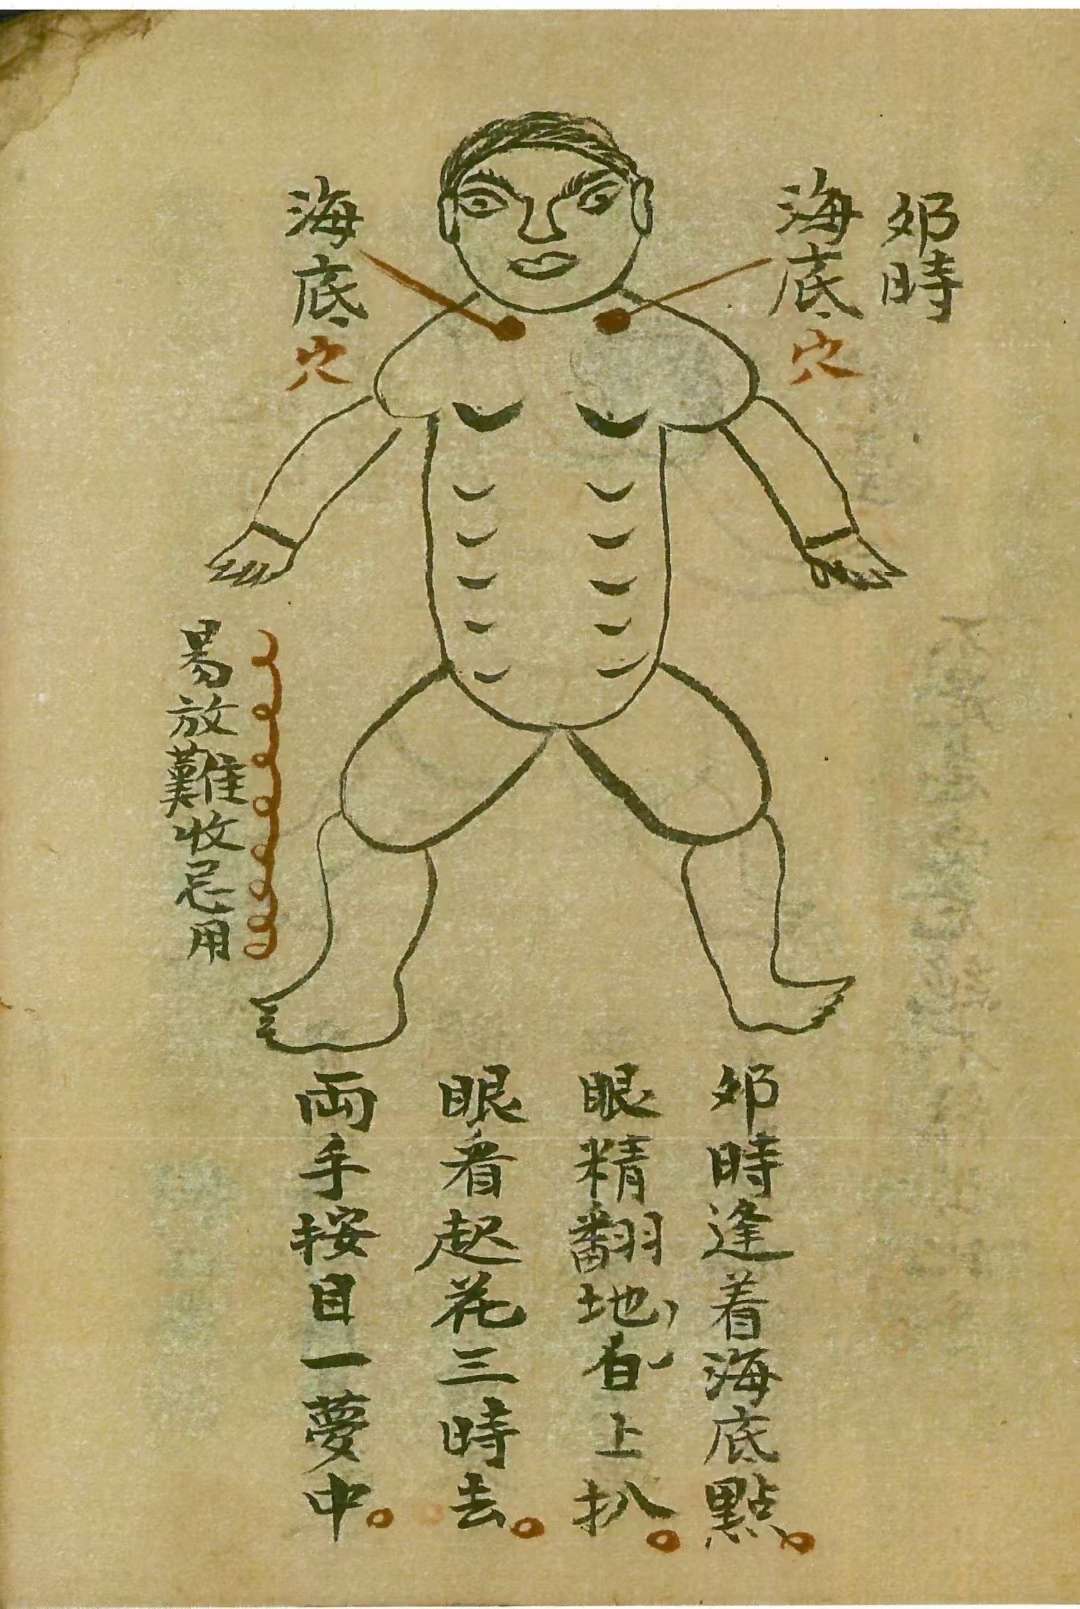 夘時
海底穴
海底穴
易放難收忌用
夘時逢着海底點
眼精翻地白上扒
眼看起花三時去
両手按目一夢中